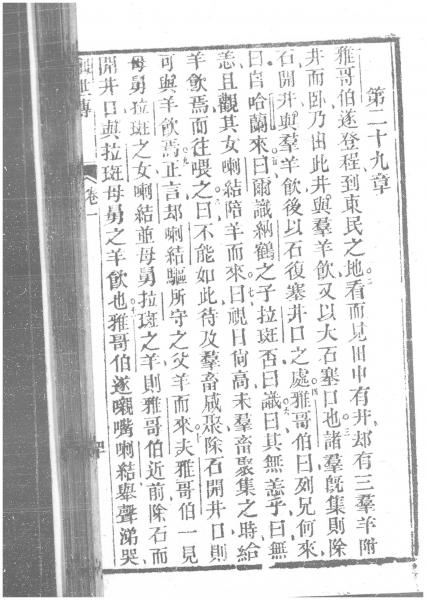 第二十九章
雅哥伯遂登程到東民之地看而見田中有井却有三羣羊附
井而臥乃由此井與羣羊飲又以大石塞口也諸羣既集則除
石開井與羣羊飲後以石復塞井口之處雅哥伯曰列兄何來
曰自哈蘭來曰爾識納鶴之子拉班否曰識曰其無恙乎曰無
恙且觀其女喇結陪羊而來曰視日尚高未羣畜聚集之時給
羊飲焉而往喂之曰不能如此待及羣畜咸聚除石開井口則
可與羊飲焉正言却喇結驅所守之父羊而來夫雅哥伯一見
母舅拉班之女喇結並母舅拉班之羊則雅哥伯近前除石而
開井口與拉班母舅之羊飲也雅哥伯遂嚫嘴喇結舉聲涕哭
世傳
卷一